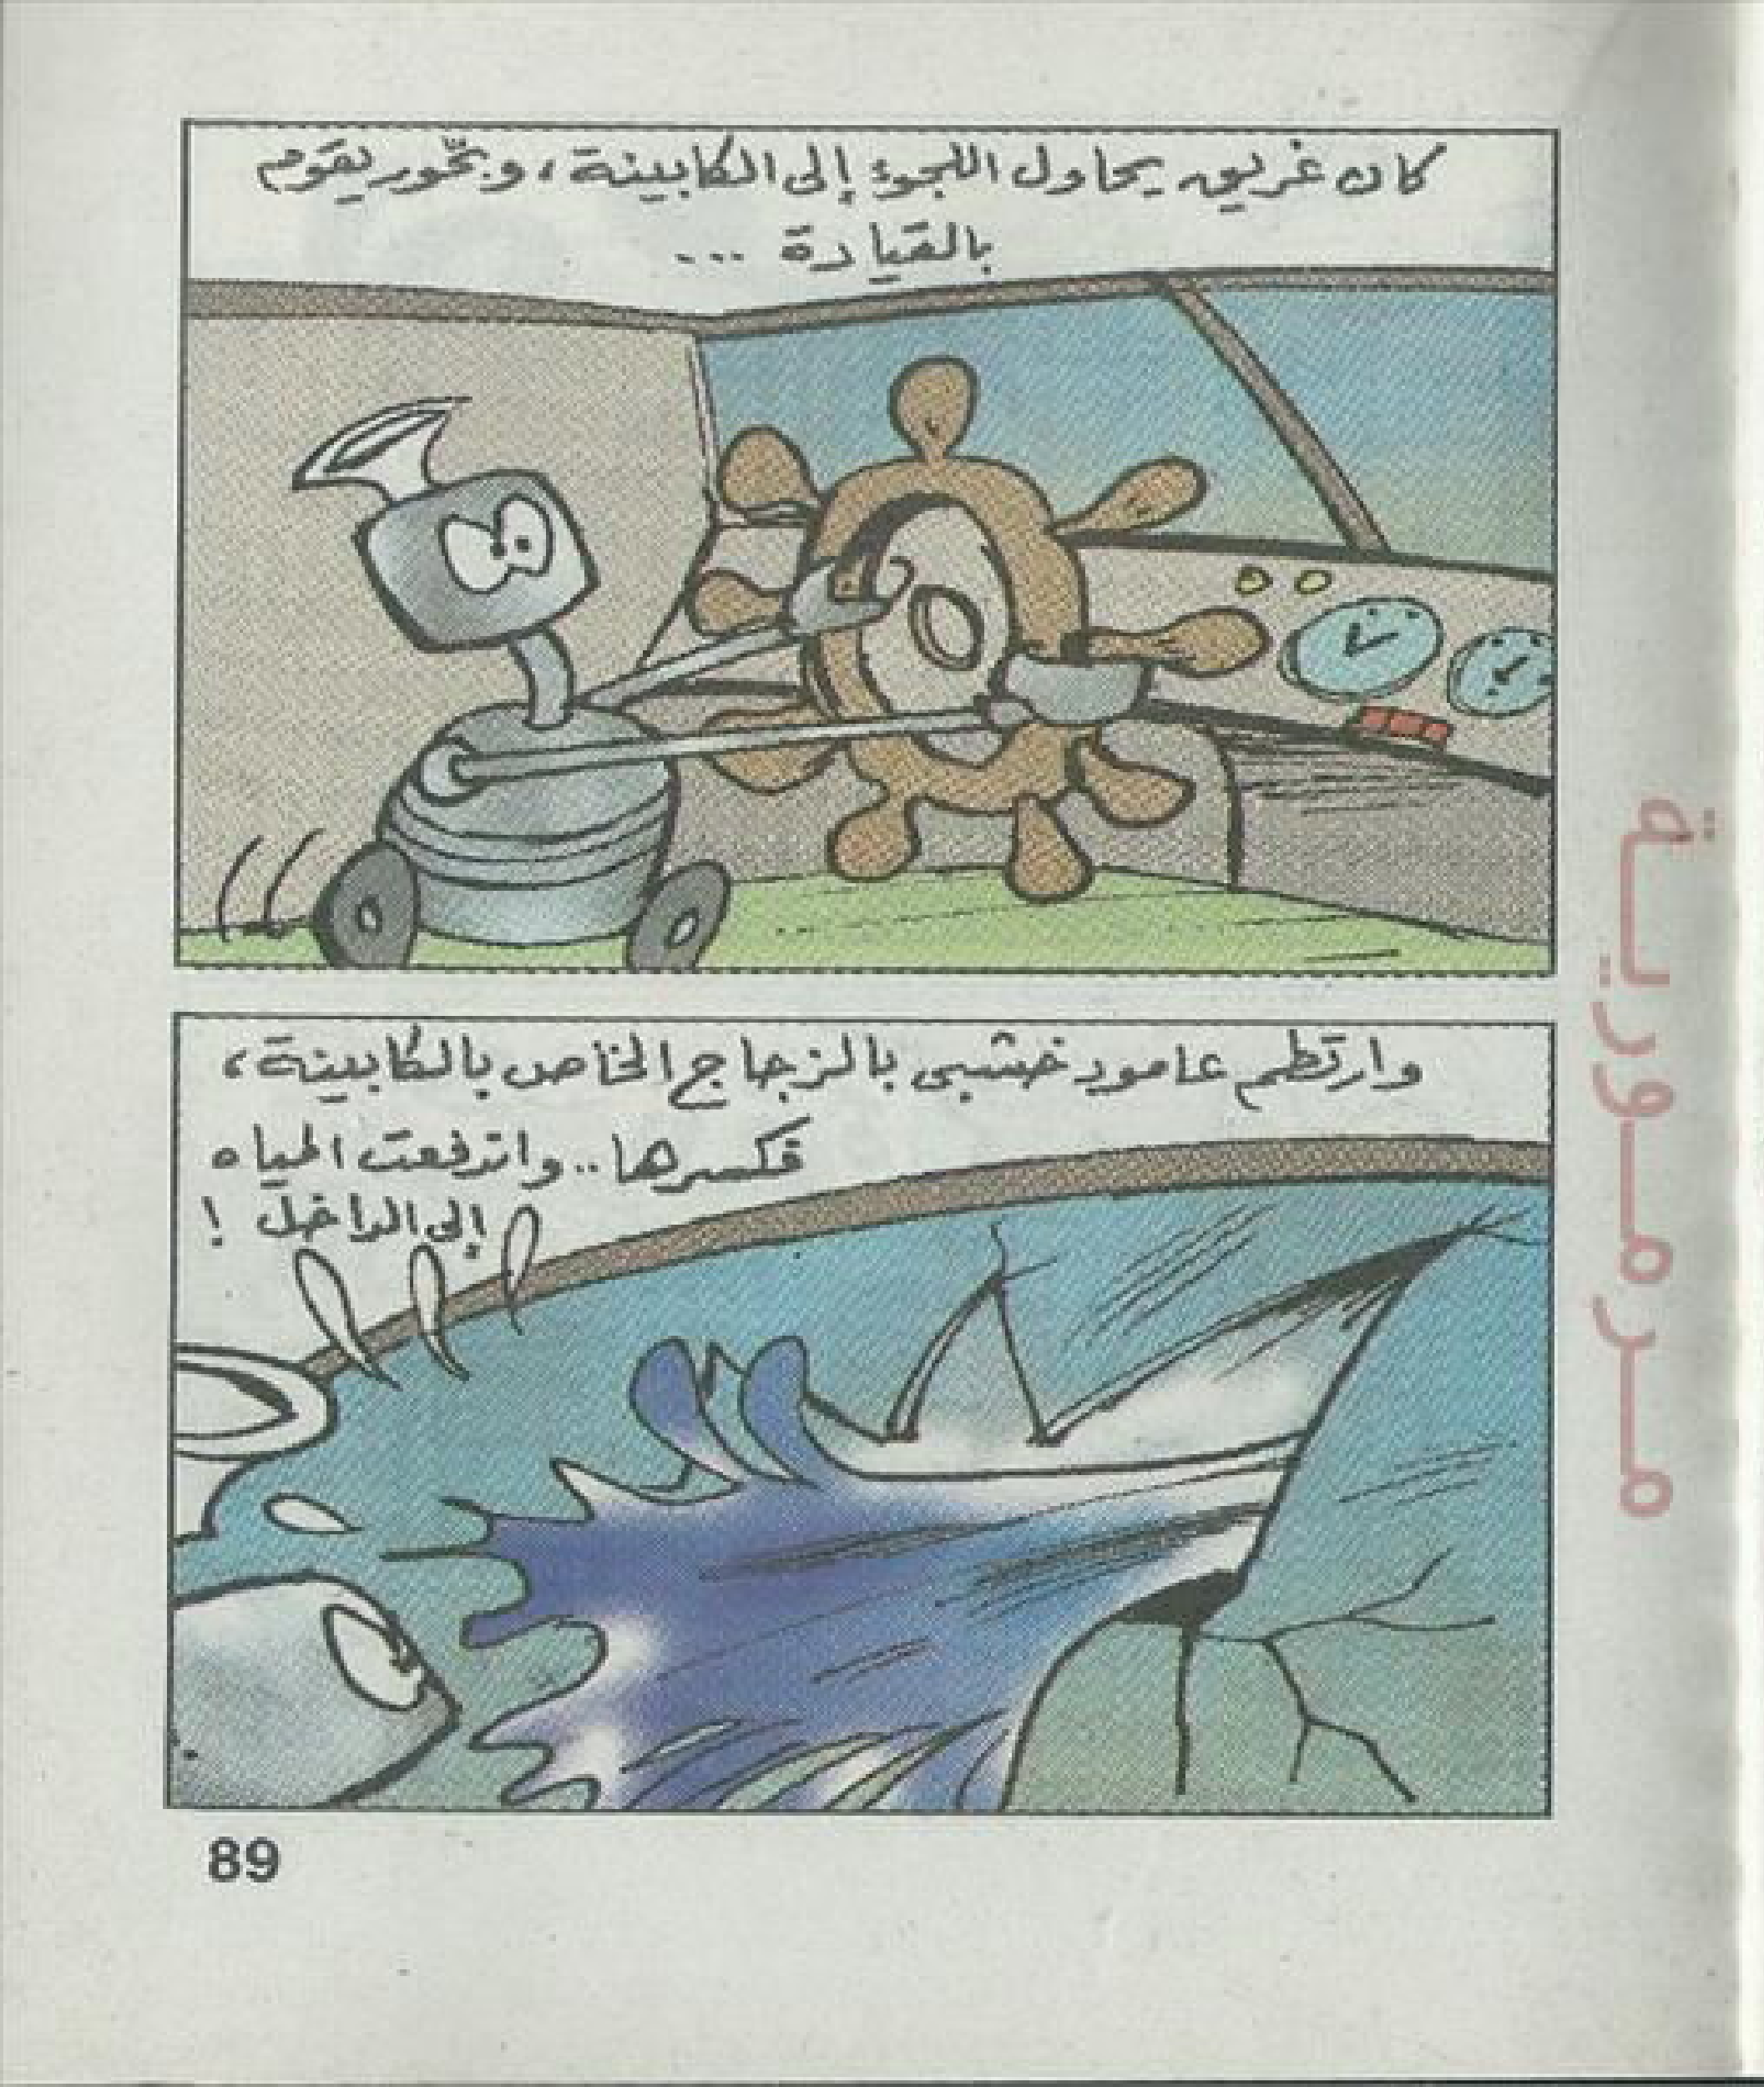 كان غريق يحاول اللجوء إلى الكابينة، وبخّور يقوم
بالقيادة ...
وارتطم عامود خشبى بالزجاج الخاص بالكابينة،
فكسرها.. واندفعت المياه
إلى الداخل !
89
مرمورية